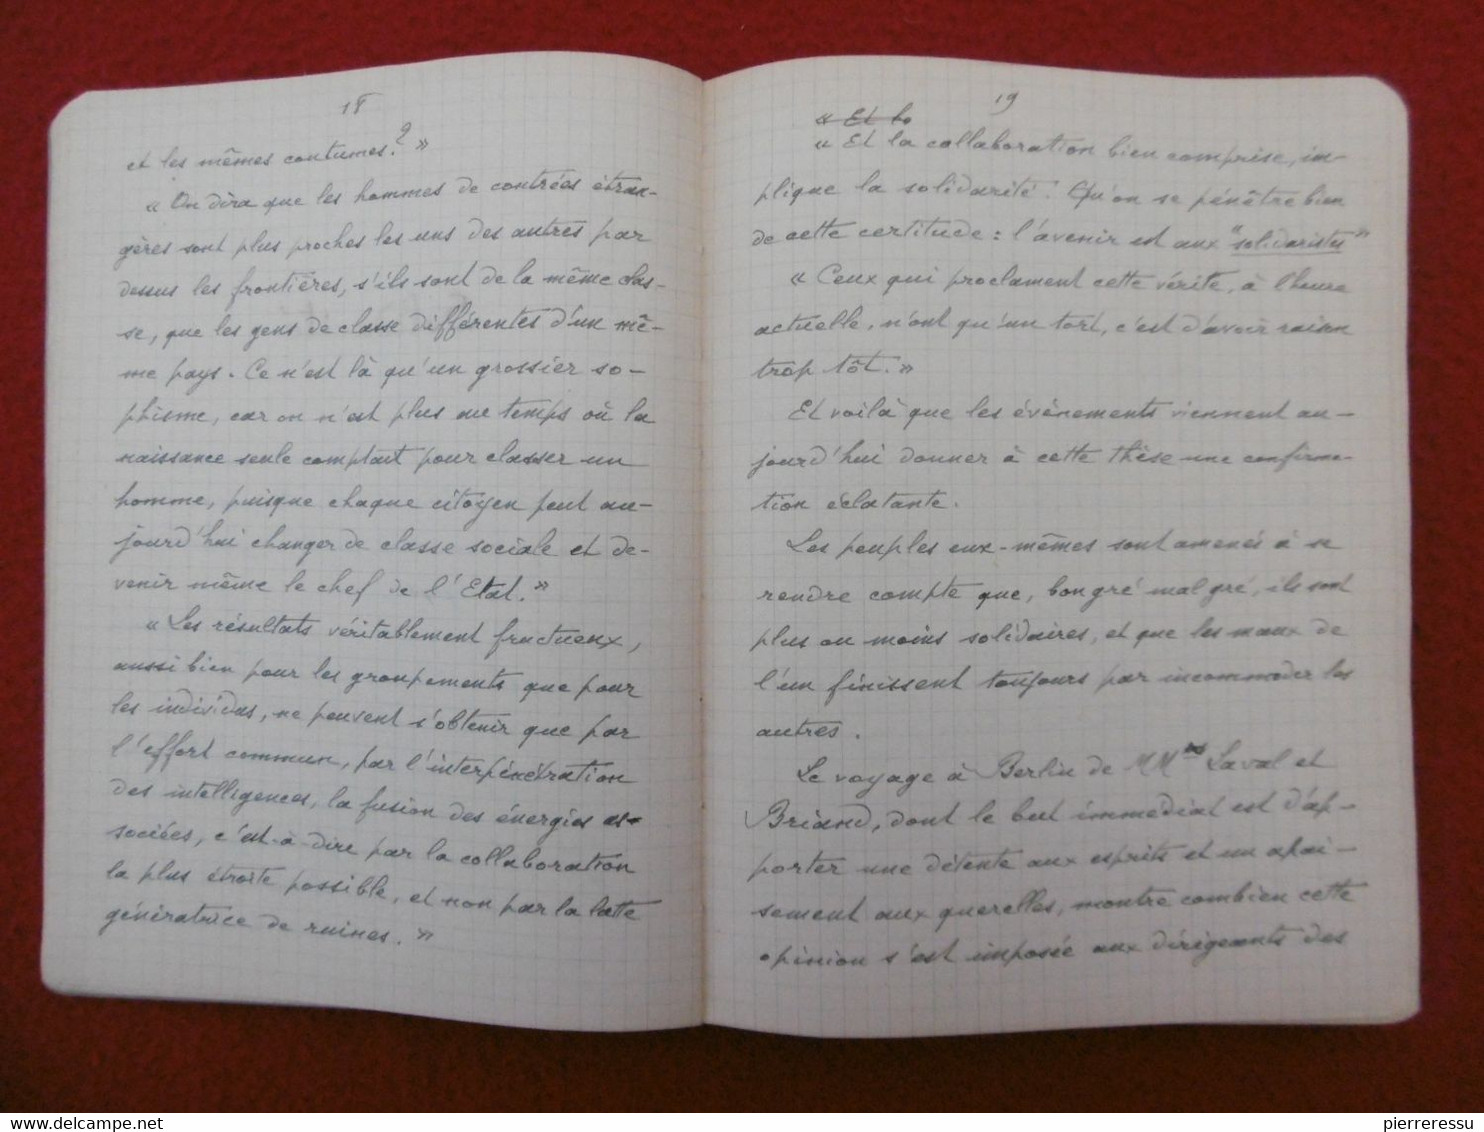 18
et les mêmes coutumes ? »
« On dira que les hommes de contrées étran-
gères sont plus proches les uns des autres par
dessus les frontières, s'ils sont de la même clas-
se, que les gens de classe différentes d'un mê-
me pays. Ce n'est là qu'un grossier so-
phisme, car on n'est plus au temps où la
naissance seule comptait pour classer un
homme, puisque chaque citoyen peut au-
jourd'hui changer de classe sociale et de-
venir même le chef de l'Etat. »
« Les résultats véritablement fructueux,
aussi bien pour les groupements que pour
les individus, ne peuvent s'obtenir que par
l'effort commun, par l'interpénétration
des intelligences, la fusion des énergies as-
sociées, c'est-à-dire par la collaboration
la plus étroite possible, et non par la lutte
génératrice de ruines. »
19
« Et la
« Et la collaboration bien comprise, im-
plique la solidarité ! Qu'on se pénêtre bien
de cette certitude : l'avenir est aux "solidaristes"
« Ceux qui proclament cette vérité, à l'heure
actuelle, n'ont qu'un tort, c'est d'avoir raison
trop tôt. »
Et voilà que les événements viennent au-
jourd'hui donner à cette thèse une confirma-
tion éclatante.
Les peuples eux-mêmes sont amenés à se
rendre compte que, bon gré mal gré, ils sont
plus ou moins solidaires, et que les maux de
l'un finissent toujours par incommoder les
autres.
Le voyage à Berlin de MMrs Laval et
Briand, dont le but immédiat est d'ap-
porter une détente aux esprits et un apai-
sement aux querelles, montre combien cette
opinion s'est imposée aux dirigeants des
delcampe.net
pierreressu